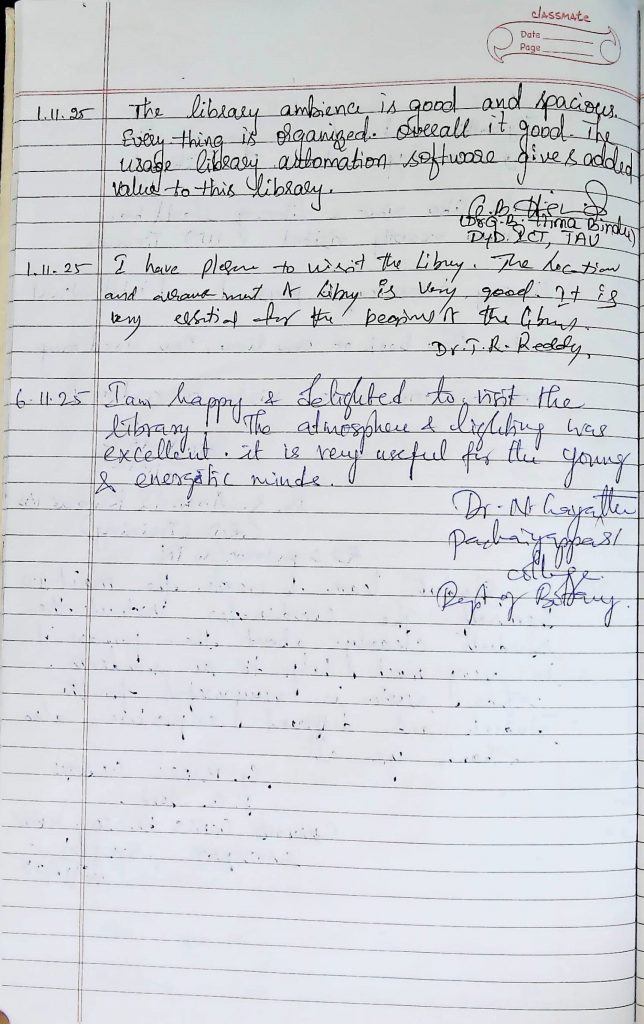 classmate
Date
Page
1.11.25 The library ambience is good and spacious.
Every thing is organized. Overall it good. The
usage library automation software gives added
value to this library.
Bindu)
ICT, TAU
1.11.25 I have to visit the Libry. The Location
and A Libry is very good. It is
very for the A the
Dr. T. R. Reddy.
6.11.25 I am happy & delighted to visit the
library. The atmosphere & lighting was
excellent. it is very useful for the young
& energetic minds.
Dr. N. Gayathri
Pachaiyappas'
college.
Dept of Botany.